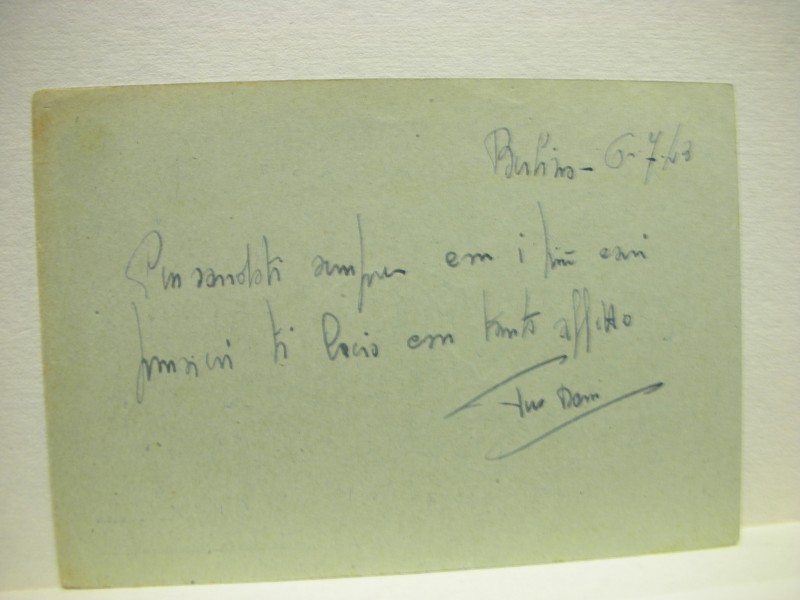 Berlino - 6-7-43
Pensandoti sempre con i più cari
pensieri ti bacio con tanto affetto
tuo